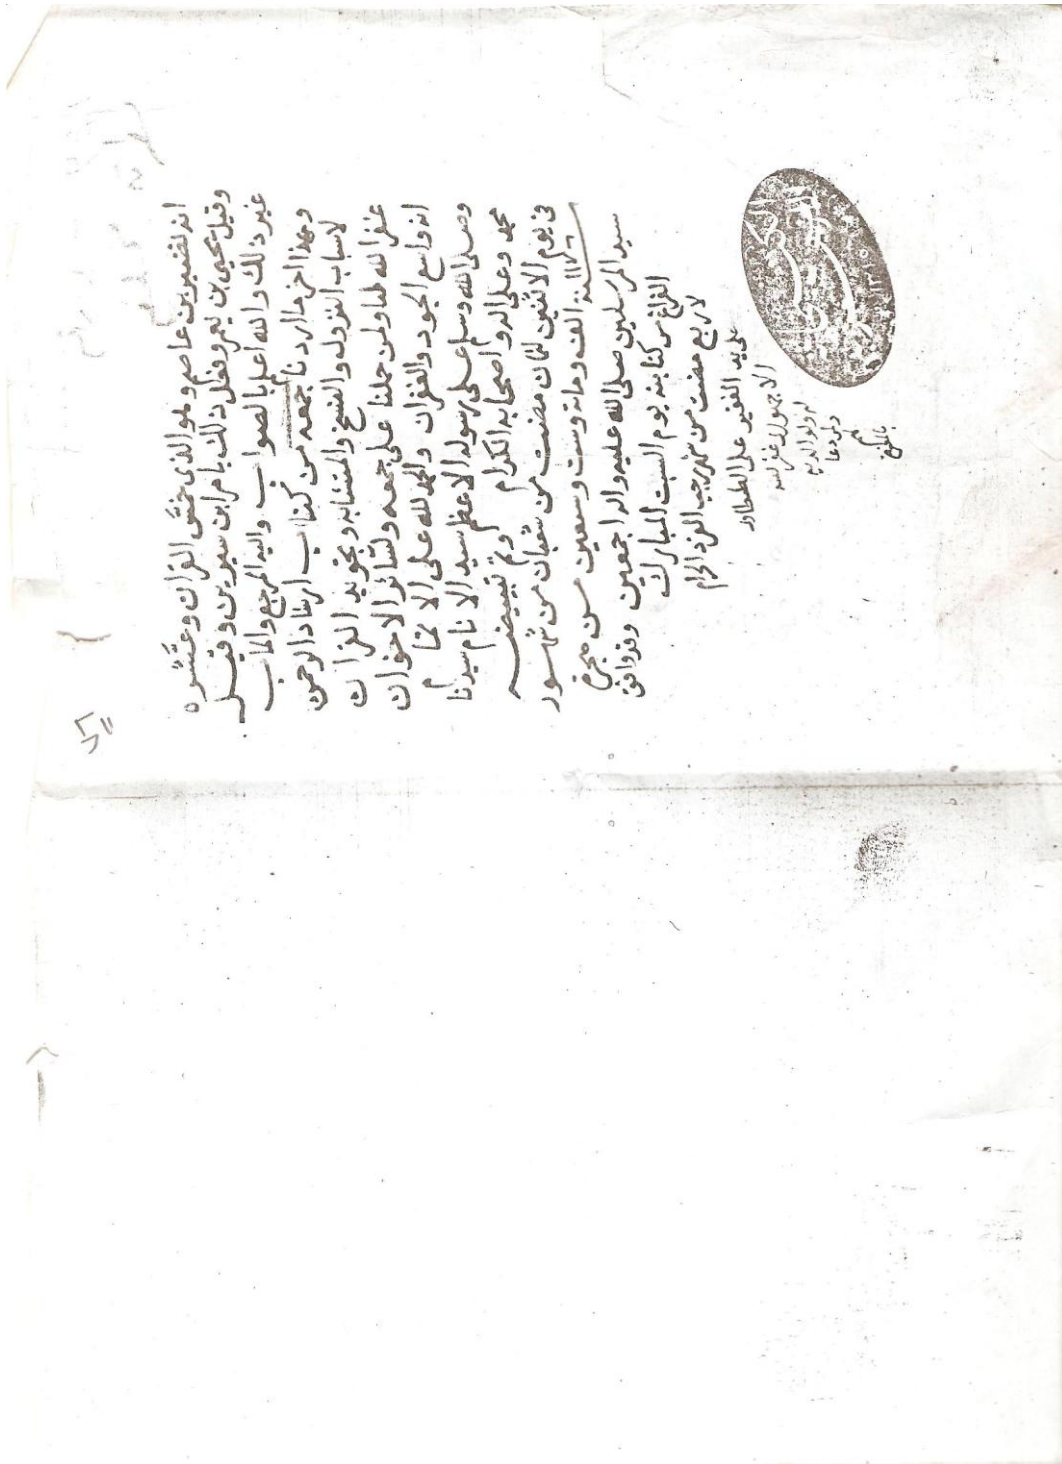 انه نصر بن عاصم وهو الذى خمّس القران وعشّره
وقيل يحيى بن يعمر وفعل ذلك بامر ابن سيرين وقيل
غير ذلك والله اعلم بالصواب واليه المرجع والماب
وهذا اخر ما اردنا جمعه من كتاب ارشاد الرحمن
لاسباب النزول والنسخ والمتشابه وتجويد القران
غفر الله لنا ولمن حملنا على جمعه ولسائر الاخوان
انه واسع الجود والغفران والحمد لله على الاتمام
وصلى الله وسلم على رسوله الاعظم سيد الانام سيدنا
محمد وعلى اله واصحابه الكرام وتم تبييضه
فى يوم الاثنين لثمان مضت من شعبان من شهور
سنة ١١٧٦ الف وماتة وست وسبعين من هجرة
سيد المرسلين صلى الله عليه واله اجمعين وقد وافق
الفراغ من كتابته يوم السبت المبارك
لاربع مضت من شهر رجب الفرد الحرام
على يد الفقير على الطحطاوى
الاجهورى غفر الله
له ولوالديه
ولمن دعا